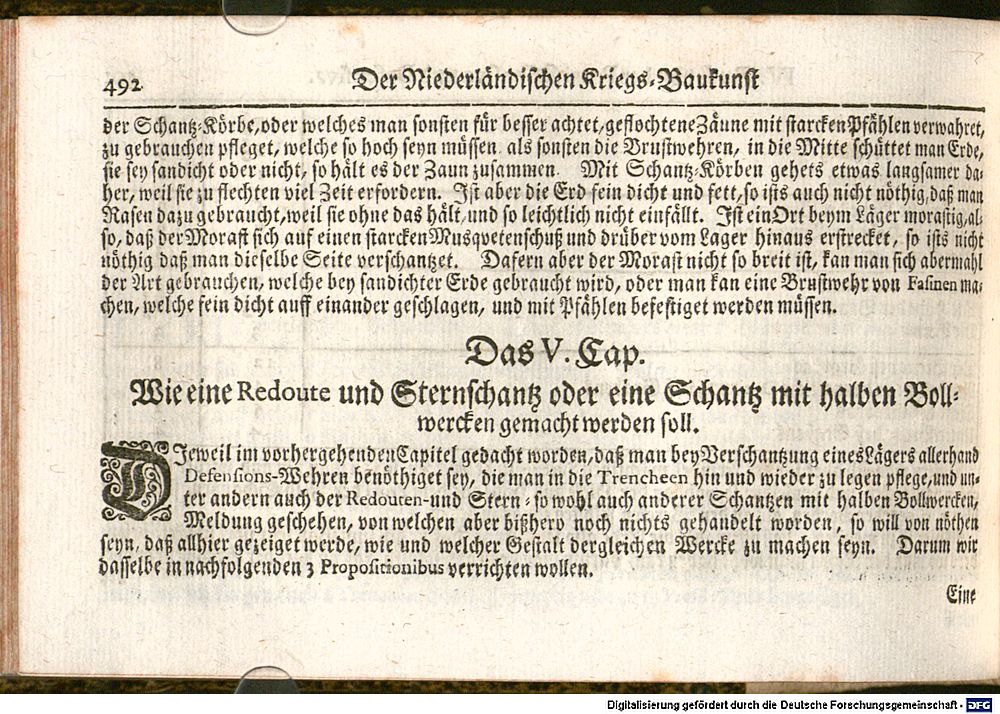 492
Der Niederländischen Kriegs-Baukunst
der Schantz-Körbe, oder welches man sonsten für besser achtet, geflochtene Zäune mit starcken Pfählen verwahret,
zu gebrauchen pfleget, welche so hoch seyn müssen als sonsten die Brustwehren, in die Mitte schüttet man Erde,
sie sey sandicht oder nicht, so hält es der Zaun zusammen. Mit Schantz-Körben gehets etwas langsamer da-
her, weil sie zu flechten viel Zeit erfordern. Ist aber die Erd fein dicht und fett, so ists auch nicht nöthig, daß man
Rasen dazu gebraucht, weil sie ohne das hält, und so leichtlich nicht einfällt. Ist ein Ort beym Läger morastig, al-
so, daß der Morast sich auf einen starcken Musqvetenschuß und drüber vom Lager hinaus erstrecket, so ists nicht
nöthig daß man dieselbe Seite verschantzet. Dafern aber der Morast nicht so breit ist, kan man sich abermahl
der Art gebrauchen, welche bey sandichter Erde gebraucht wird, oder man kan eine Brustwehr von Fasinen ma-
chen, welche fein dicht auff einander geschlagen, und mit Pfählen befestiget werden müssen.
Das V. Cap.
Wie eine Redoute und Sternschantz oder eine Schantz mit halben Boll-
wercken gemacht werden soll.
DIeweil im vorhergehenden Capitel gedacht worden, daß man bey Verschantzung eines Lägers allerhand
Defensions-Wehren benöthiget sey, die man in die Trencheen hin und wieder zu legen pflege, und un-
ter andern auch der Redouten- und Stern- so wohl auch anderer Schantzen mit halben Bollwercken,
Meldung geschehen, von welchen aber bißhero noch nichts gehandelt worden, so will von nöthen
seyn, daß allhier gezeiget werde, wie und welcher Gestalt dergleichen Wercke zu machen seyn. Darum wir
dasselbe in nachfolgenden 3 Propositionibus verrichten wollen.
Eine
Digitalisierung gefördert durch die Deutsche Forschungsgemeinschaft - DFG